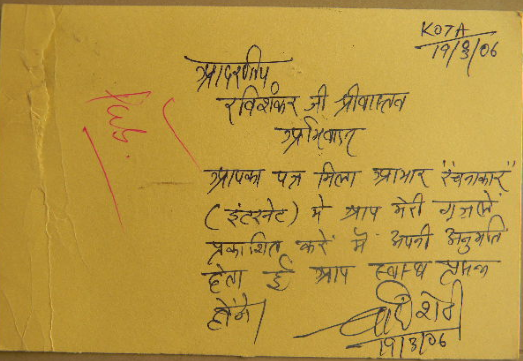 KOTA
19/3/06
आदरणीय
रविशंकर जी श्रीवास्तव
अभिवादन
आपका पत्र मिला आभार "रचनाकार"
(इंटरनेट) में आप मेरी गज़लें
प्रकाशित करें मैं अपनी अनुमति
देता हूँ आप स्वस्थ प्रसन्न
होंगे
19/3/06